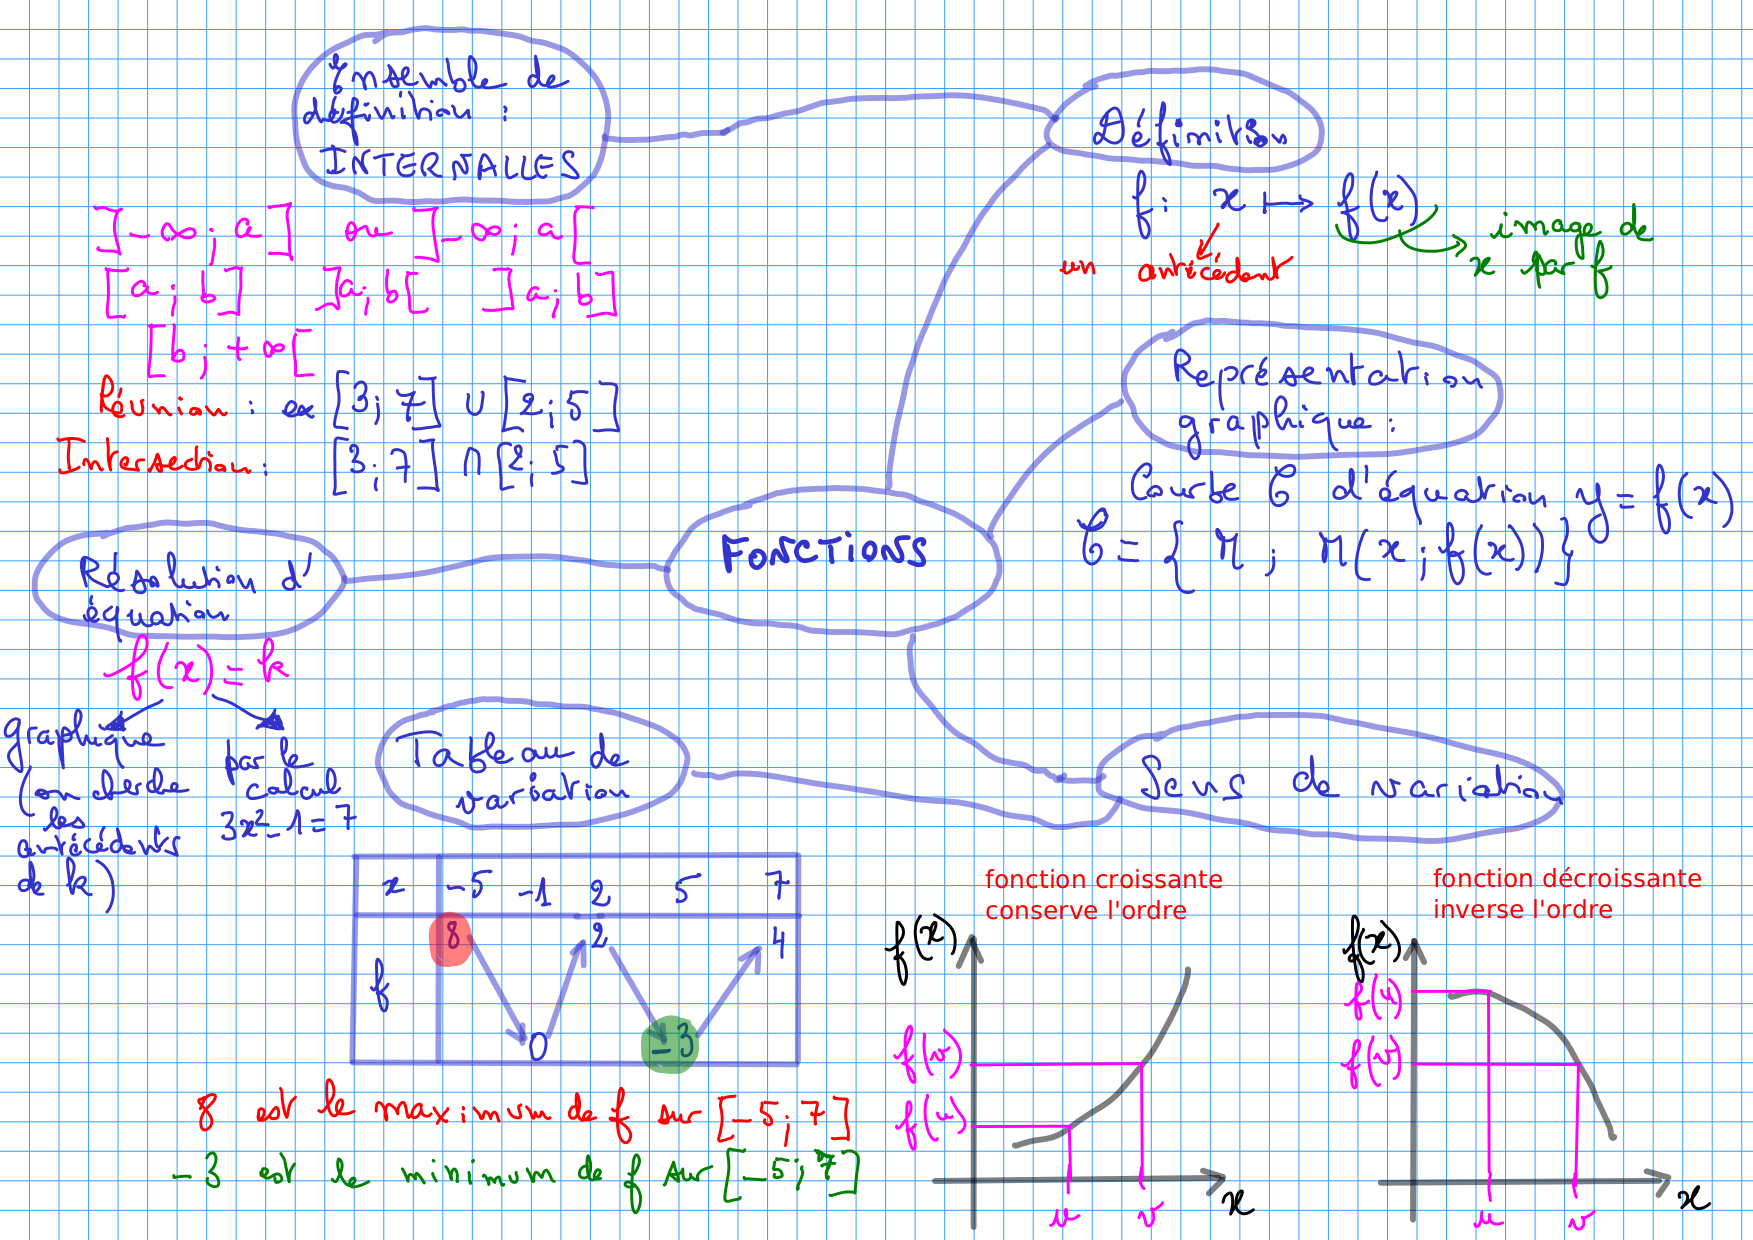 Ensemble de
définition :
INTERVALLES
]-∞ ; a ] ou ]-∞ ; a [
[a ; b] ]a ; b[ ]a ; b]
[b ; +∞[
Réunion : ex [3 ; 7] ∪ [2 ; 5]
Intersection : [3 ; 7] ∩ [2 ; 5]
Définition
f : x ↦ f(x)
un antécédent
image de
x par f
Représentation
graphique :
Courbe C d'équation y = f(x)
C = { M ; M(x ; f(x)) }
FONCTIONS
Résolution d'
équation
f(x) = k
graphique
(on cherche
les
antécédents
de k)
par le
calcul
3x² - 1 = 7
Tableau de
variation
x -5 -1 2 5 7
8 2 4
f
0 -3
8 est le maximum de f sur [-5 ; 7]
-3 est le minimum de f sur [-5 ; 7]
Sens de variation
fonction croissante
conserve l'ordre
f(x)
f(v)
f(u)
u v x
fonction décroissante
inverse l'ordre
f(x)
f(u)
f(v)
u v x